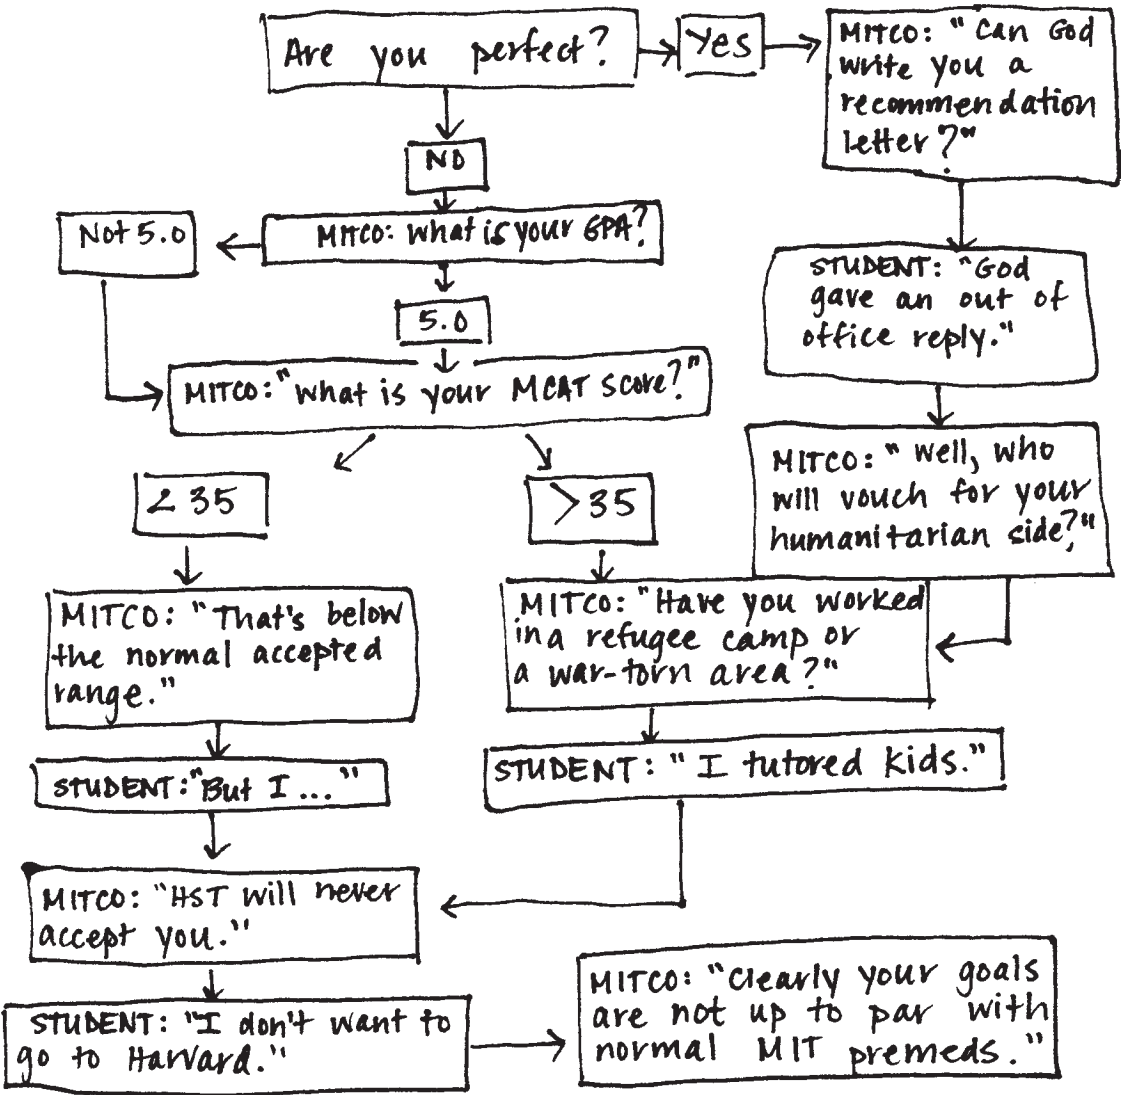 Are you perfect?
Yes
MITCO: "Can God
write you a
recommendation
letter?"
NO
MITCO: What is your GPA?
Not 5.0
5.0
STUDENT: "God
gave an out of
office reply."
MITCO: "What is your MCAT score?"
< 35
> 35
MITCO: "Well, who
will vouch for your
humanitarian side?"
MITCO: "That's below
the normal accepted
range."
MITCO: "Have you worked
in a refugee camp or
a war-torn area?"
STUDENT: "But I ..."
STUDENT: "I tutored kids."
MITCO: "HST will never
accept you."
STUDENT: "I don't want to
go to Harvard."
MITCO: "Clearly your goals
are not up to par with
normal MIT premeds."